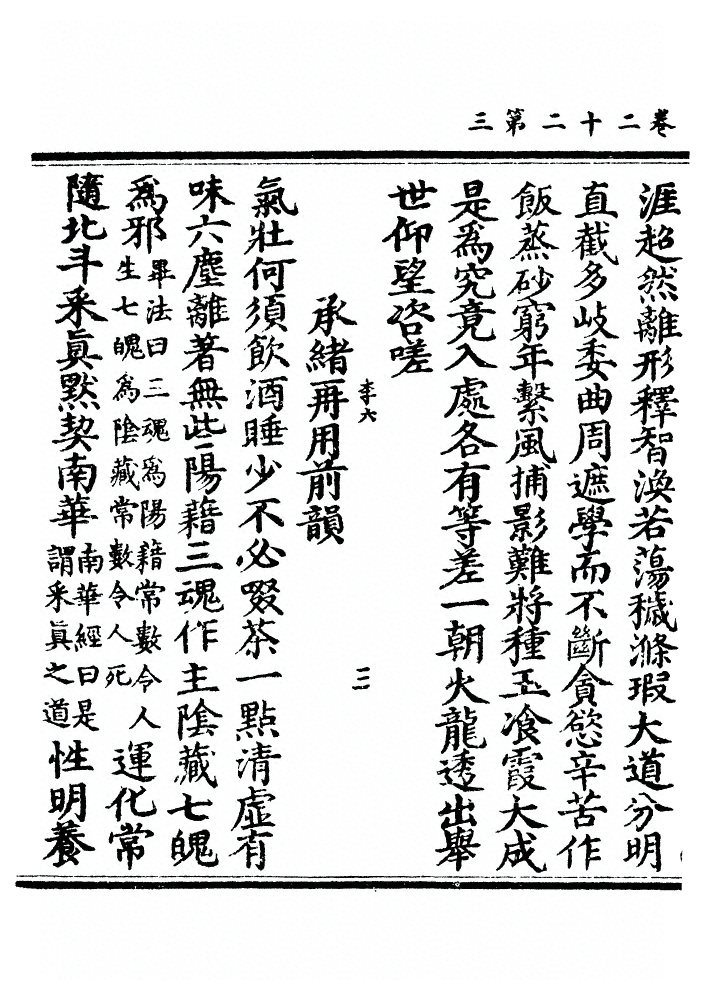 卷二十二第三
涯超然離形釋智渙若蕩穢滌瑕大道分明
直截多岐委曲周遮學而不斷貪慾辛苦作
飯蒸砂窮年繫風捕影難將種玉飡霞大成
是為究竟入處各有等差一朝火龍透出舉
世仰望咨嗟
承緒再用前韻
李六
三
氣壯何須飲酒睡少不必啜茶一點清虛有
味六塵離著無些陽籍三魂作主陰藏七魄
為邪畢法曰三魂為陽籍常數令人生七魄為陰藏常數令人死運化常
隨北斗采真默契南華南華經曰是謂采真之道性明養